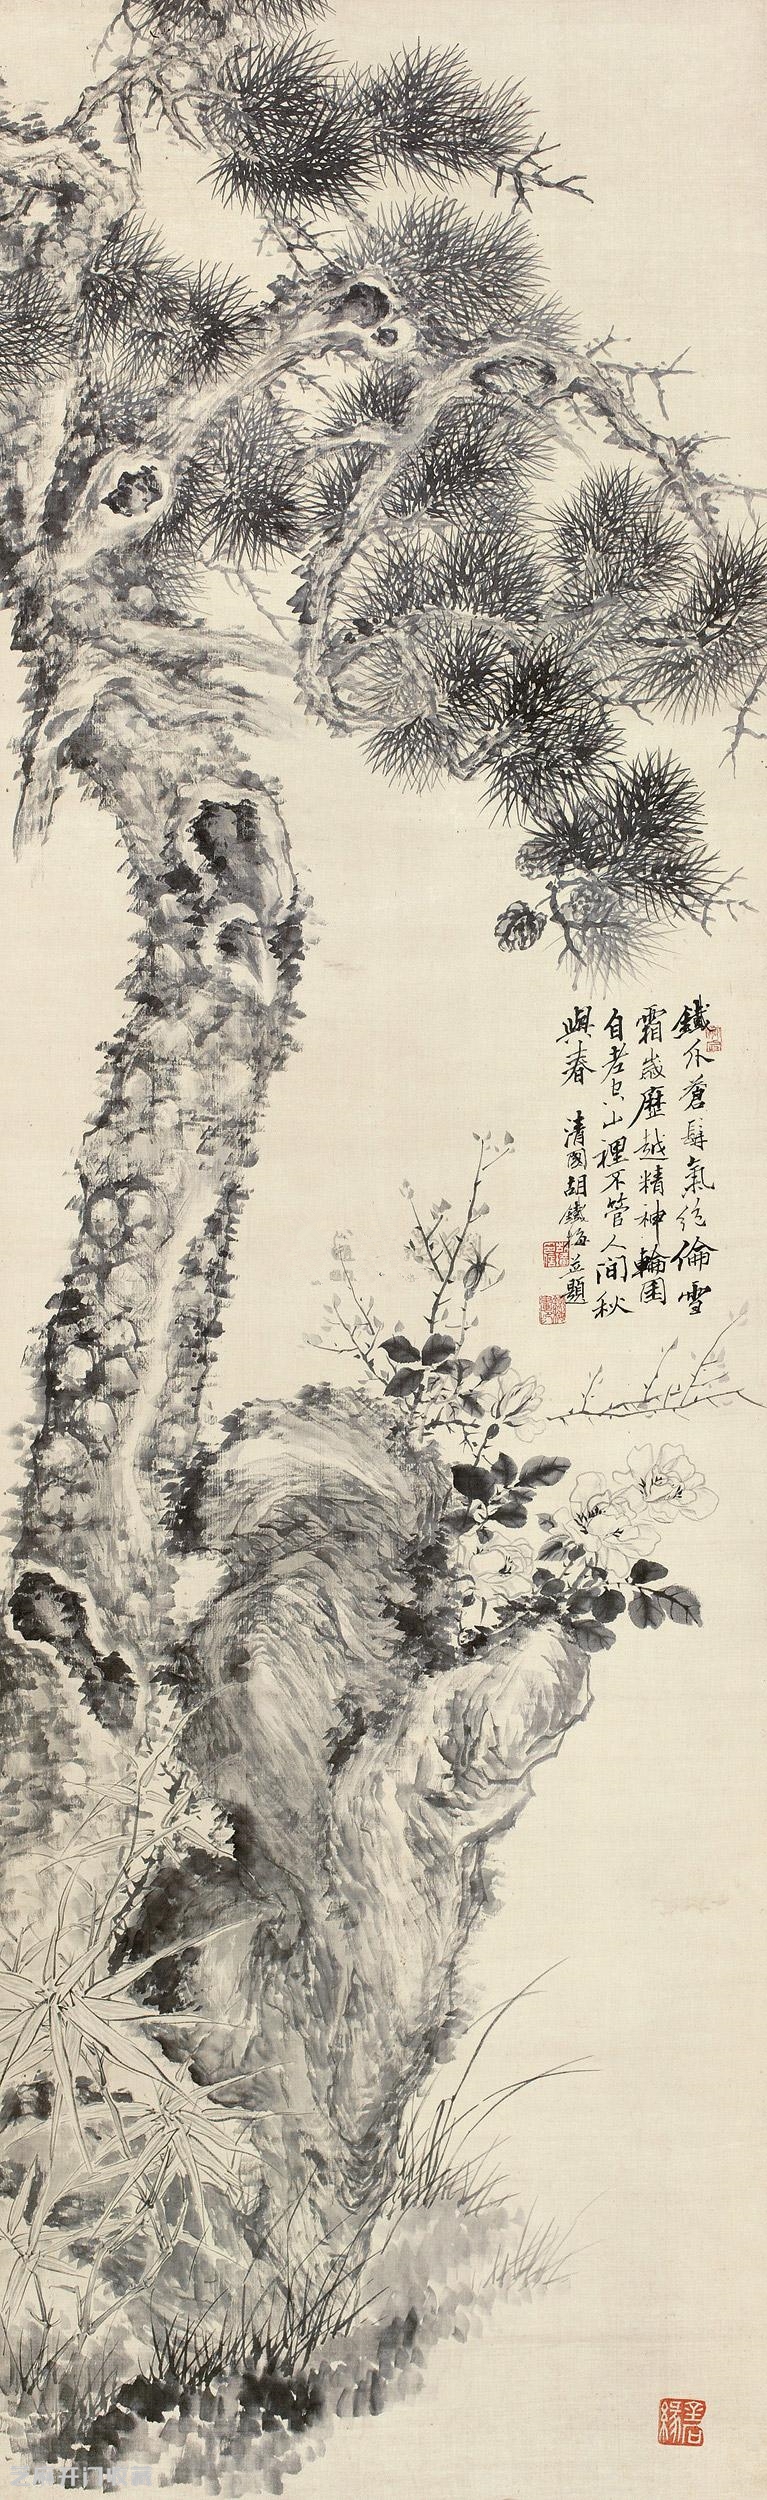 鐵爪蒼髯氣絕倫雪
霜歲歷越精神輪囷
自老空山裡不管人間秋
與春
清國胡鐵梅並題